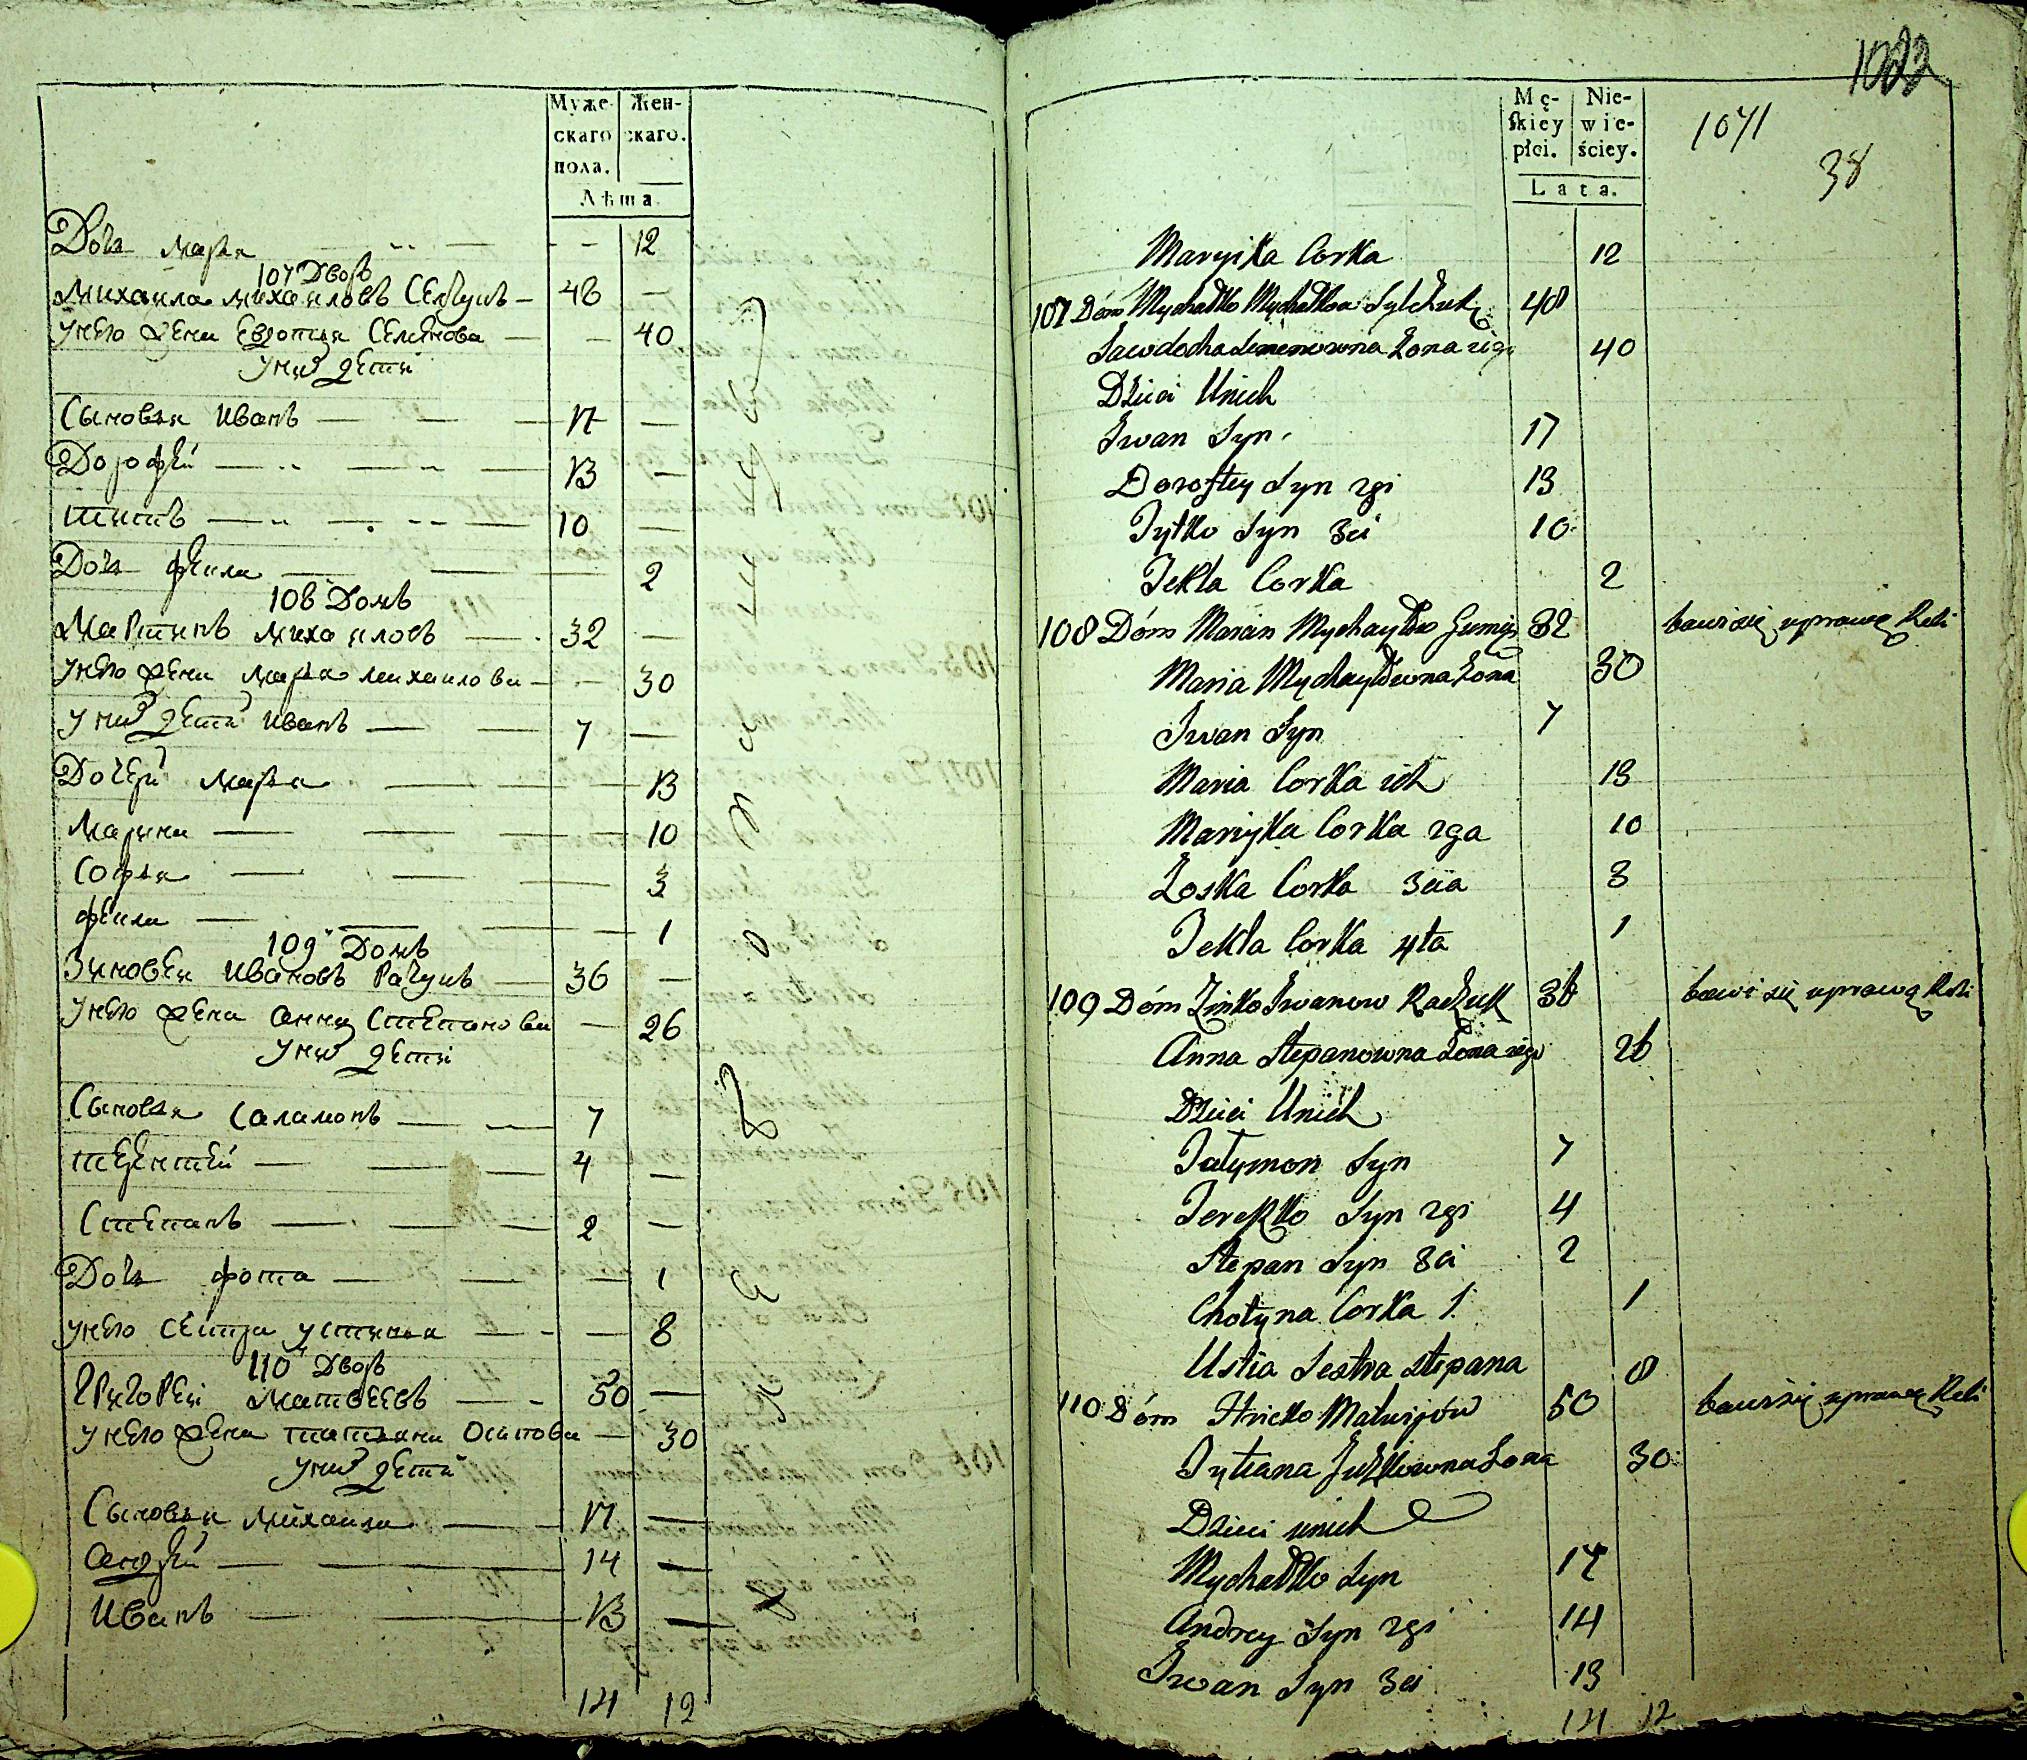 Муже-
скаго
пола.
Жен-
скаго.
Лѣта.
Дочь марья 12
107 Дворъ
Михаила михаиловъ 48
унего жена Сем
уних дети
Сыновья Иванъ 17
Дорофей 13
титъ 10
Дочь фекла 2
108 Домъ
Мартинъ михаиловъ 32
унего жена марья михаилова 30
уних дети Иванъ 7
Дочери марья 13
марина 10
Софья 3
фекла 1
109 Домъ
Зиновеи Ивановъ Рачукъ 36
унего жена анна Степанова 26
уних дети
Сыновья Саламонъ 7
терентей 4
Степанъ 2
Дочь фота 1
унего сестра устинья 8
110 Дворъ
Григореи матвеевъ 50
унего жена татьяна Осипова 30
уних дети
Сыновья михаила 17
андрей 14
Иванъ 13
14 12
1071
38
Mę-
skiey
płci.
Nie-
wie-
ściey.
Lata.
Maryika Corka 12
107 Dóm Mychałko 48
Jawdocha Semenowna Żona iego 40
Dzieci Unich
Iwan Syn 17
Doroftey Syn 2gi 13
Tytko Syn 3ci 10
Tekla Corka 2
108 Dóm 32 bawi się uprawą Roli
Maria Mychayłowna Żona 30
Iwan Syn 7
Maria Corka ich 13
Maryjka Corka 2ga 10
Zoska Corka 3cia 3
Tekla Corka 4ta 1
109 Dóm Zinko Iwanow Raczuk 36 bawi się uprawą Roli
Anna Stepanowna Żona iego 26
Dzieci Unich
Sałymon Syn 7
Teresko Syn 2gi 4
Stepan Syn 3ci 2
Chotyna Corka 1
Ustia Sestra Stepana 8
110 Dóm Hricko Matwijów 50 bawi się uprawą Roli
Tytiana Żona 30
Dzieci unich
Mychałko Syn 17
Andrey Syn 2gi 14
Iwan Syn 3ci 13
14 12